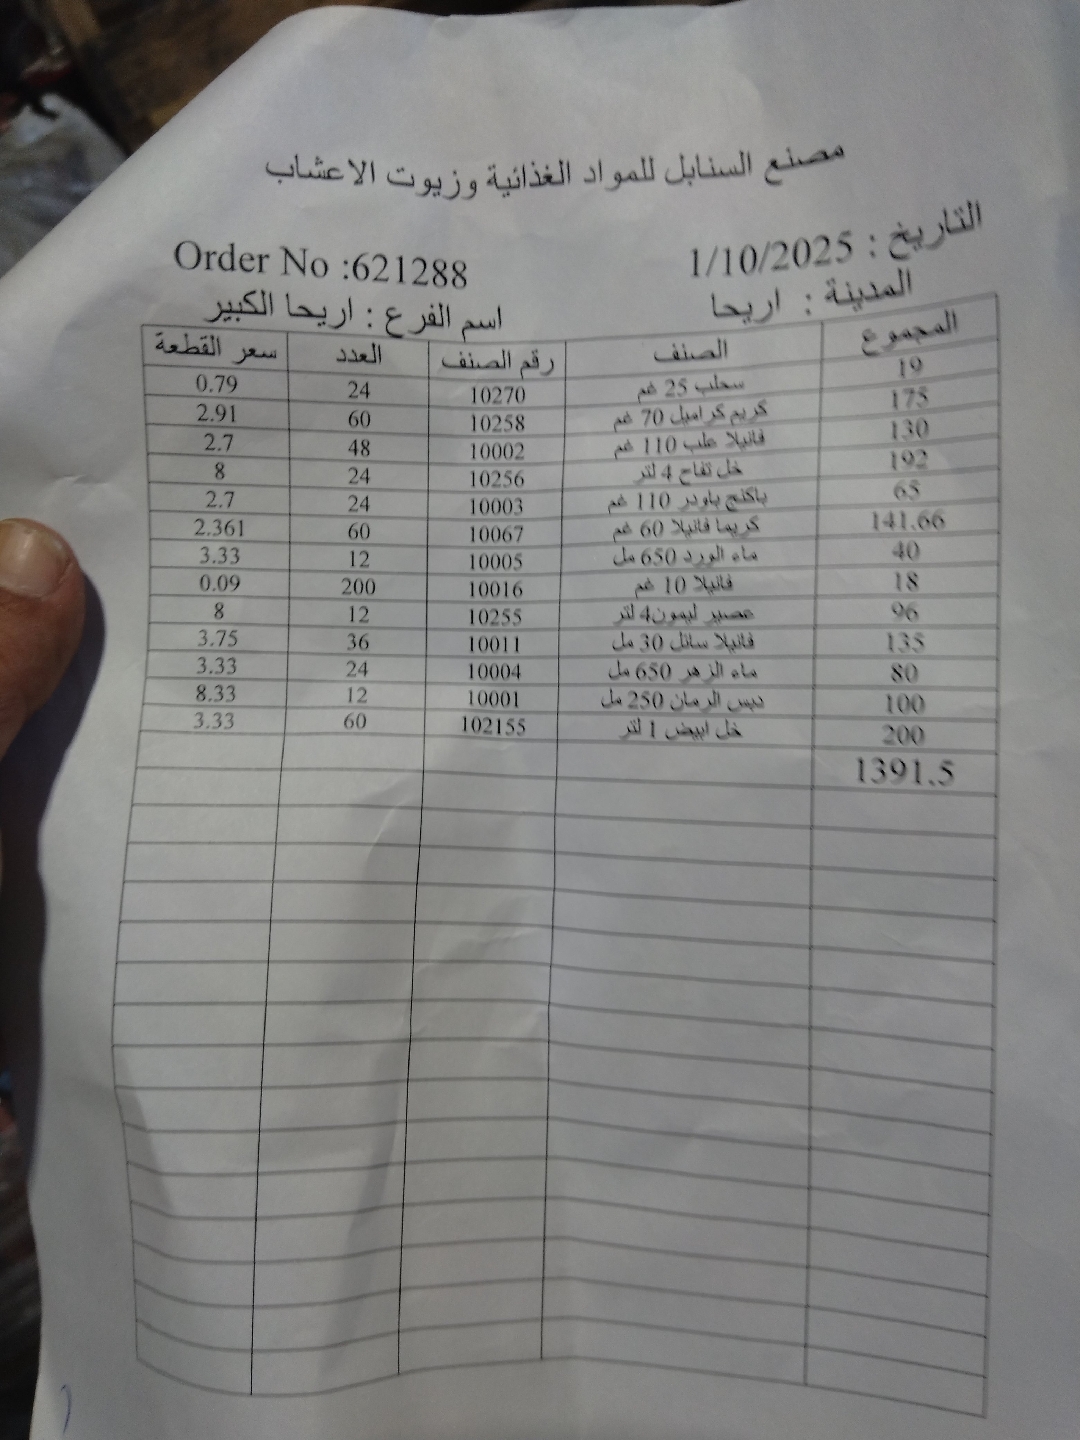 مصنع السنابل للمواد الغذائية وزيوت الاعشاب
التاريخ : 1/10/2025 Order No :621288
المدينة : اريحا اسم الفرع : اريحا الكبير
المجموع الصنف رقم الصنف العدد سعر القطعة
19 سحلب 25 غم 10270 24 0.79
175 كريم كراميل 70 غم 10258 60 2.91
130 فانيلا علب 110 غم 10002 48 2.7
192 خل تفاح 4 لتر 10256 24 8
65 باكنج باودر 110 غم 10003 24 2.7
141.66 كريما فانيلا 60 غم 10067 60 2.361
40 ماء الورد 650 مل 10005 12 3.33
18 فانيلا 10 غم 10016 200 0.09
96 عصير ليمون4 لتر 10255 12 8
135 فانيلا سائل 30 مل 10011 36 3.75
80 ماء الزهر 650 مل 10004 24 3.33
100 دبس الرمان 250 مل 10001 12 8.33
200 خل ابيض 1 لتر 102155 60 3.33
1391.5